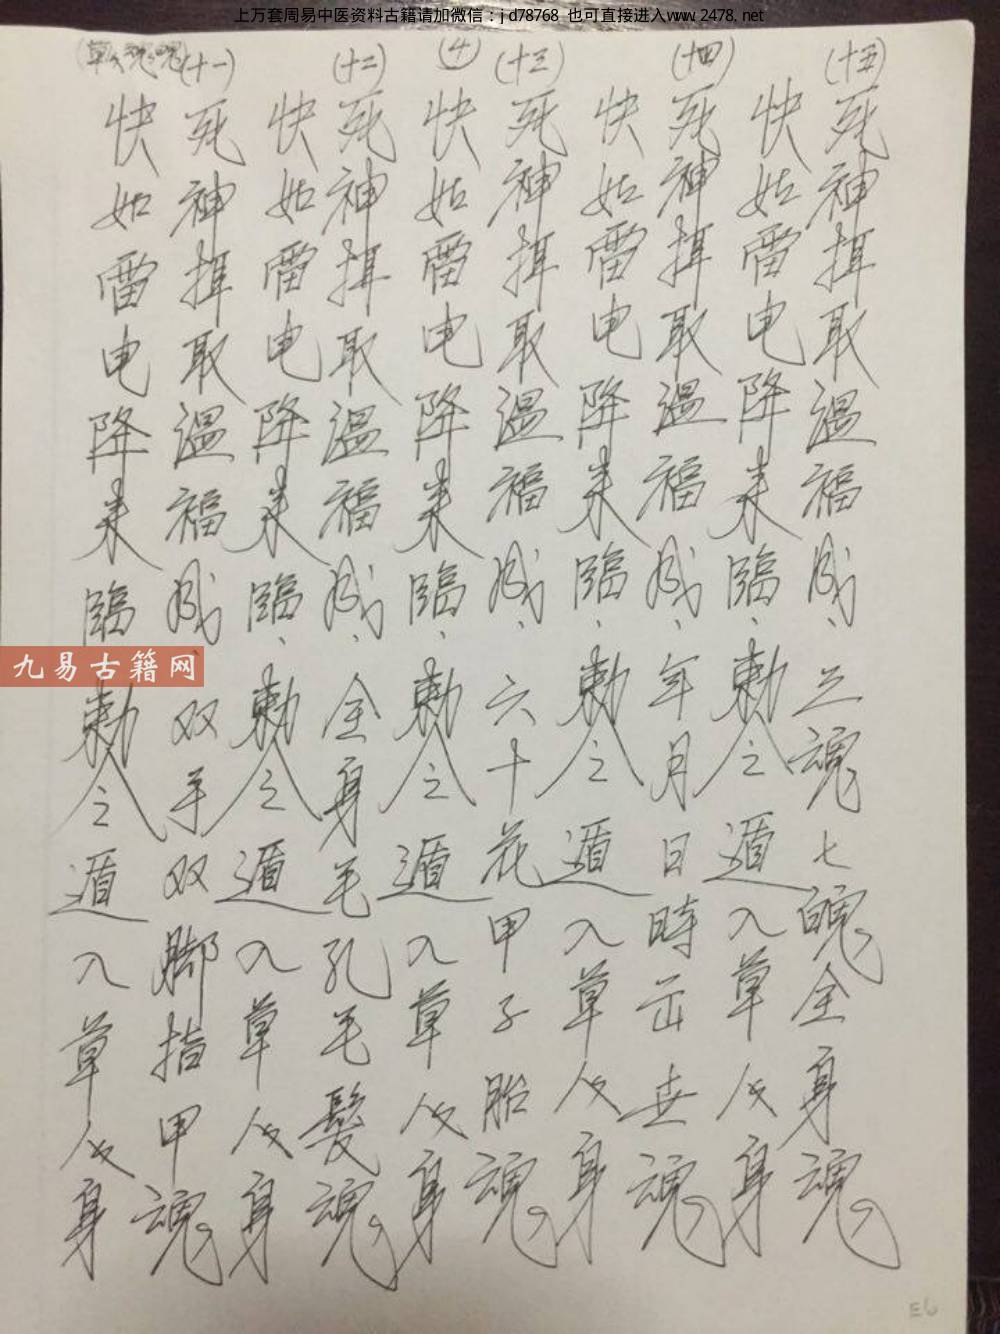 上万套周易中医资料古籍请加微信：jd78768 也可直接进入www.2478.net
(十五)
死神挕取溫福、三魂七魄全身魂
快如雷电降来臨、勅令遁入草人身
(十四)
死神挕取溫福、年月日時出世魂
快如雷电降来臨、勅令遁入草人身
(十三)
死神挕取溫福、六十花甲子胎魂
④
快如雷电降来臨、勅令遁入草人身
(十二)
死神挕取溫福、全身毛孔毛髮魂
快如雷电降来臨、勅令遁入草人身
(十一)
死神挕取溫福、双手双脚指甲魂
快如雷电降来臨勅令遁入草人身
九易古籍网